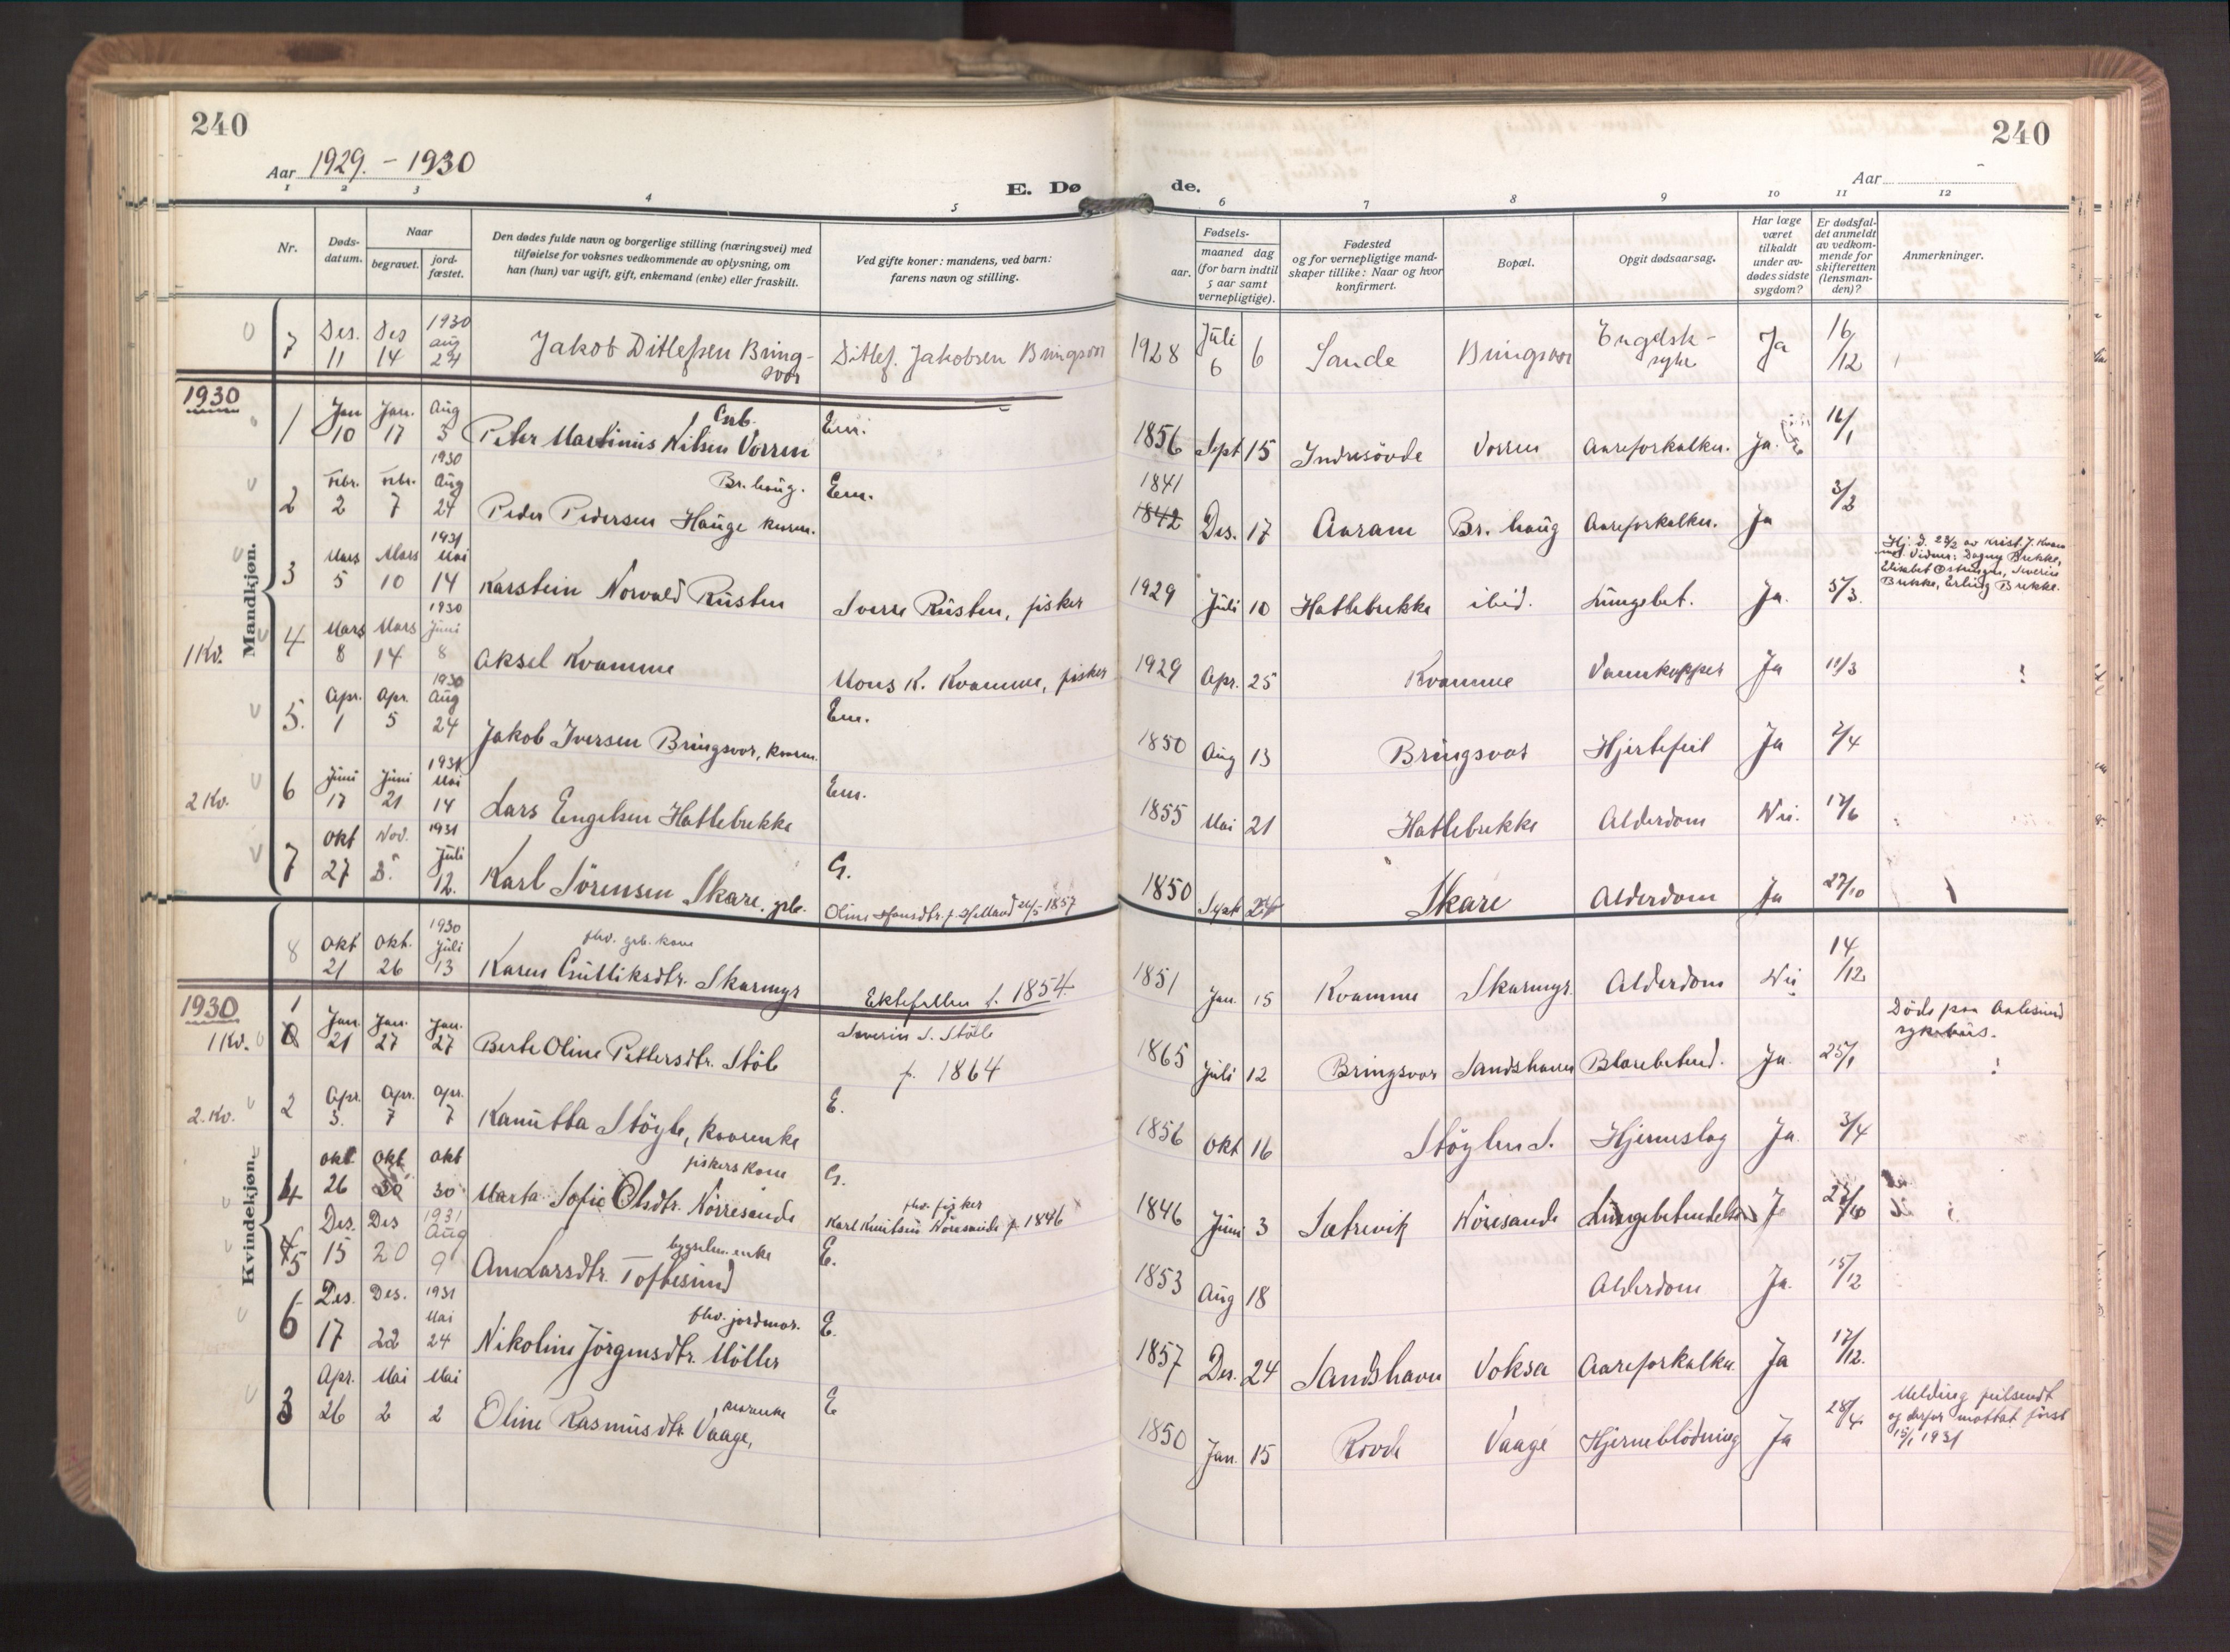 240
240
Aar 1929. - 1930
E. Dø
de.
Aar
1 2 3 4 5 6 7 8 9 10 11 12
Nr.
Døds-
datum.
Naar
begravet.
jord-
fæstet.
Den dødes fulde navn og borgerlige stilling (næringsvei) med
tilføielse for voksnes vedkommende av oplysning, om
han (hun) var ugift, gift, enkemand (enke) eller fraskilt.
Ved gifte koner: mandens, ved barn:
farens navn og stilling.
Fødsels-
aar.
maaned dag
(for barn indtil
5 aar samt
vernepligtige).
Fødested
og for vernepligtige mand-
skaper tillike: Naar og hvor
konfirmert.
Bopæl.
Opgit dødsaarsag.
Har læge
været
tilkaldt
under av-
dødes sidste
sygdom?
Er dødsfal-
det anmeldt
av vedkom-
mende for
skifteretten
(lensman-
den)?
Anmerkninger.
Mandkjøn.
7 Des. 11 Des 14 1930 aug 24 Jakob Ditlefsen Bring-
svor
Ditlef. Jakobsen Bringsvor 1928 Juli 6 6 Sande Bringsvor Engelsk-
syke
Ja 16/12
1930
1 Jan 10 Jan. 17 Aug 3 Peter Martinus Nilsen Vorren Em. 1856 Sept 15 Indresövde Vorren Aareforkalkn. Ja. 16/1
2 Febr. 2 Febr. 7 1930 Aug 24 Peder Pedersen Hauge Br. haug. Em. 1841 1842 Des. 17 Aaram Br. haug Aareforkalkn. Ja 3/2
3 Mars 5 Mars 10 1931 Mai 14 Karstein Norvald Rusten Sverre Rusten, fisker 1929 Juli 10 Hatlebrekke ibid. Lungebet. Ja. 5/3.
Hj. d. 28/2 av Krist. J.
Vidner: Dagny Brekke,
Brekke, Erling Brekke.
1 Kv. 4 Mars 8 Mars 14 1930 Juni 8 Aksel Kvamme Mons K. Kvamme, fisker 1929 Apr. 25 Kvamme Vannkopper Ja 11/3
5. Apr. 1 Apr. 5 1930 Aug 24 Jakob Iversen Bringsvor, Em. 1850 Aug 13 Bringsvor Hjertefeil Ja 2/4
2 Kv. 6 Juni 17 Juni 21 1931 Mai 14 Lars Engelsen Hatlebrekke Em. 1855 Mai 21 Hatlebrekke Alderdom Nei. 17/6
7 Okt 27 Nov. 5. 1931 Juli 12. Karl Sörensen Skare, grb. G.
Oline Hansdtr. f. Helland 26/5 1857 1850 Sept Skare Alderdom Ja 27/10
Kvindekjøn.
8 Okt 21 Okt. 26 1930 Juli 13 fhv. grb. kone
Karen Guttiksdtr. Skarmyr Ektefellen f. 1854. 1851 Jan. 15 Kvamme Skarmyr Alderdom Nei 14/12
1930
1 Kv. 1 Jan. 21 Jan. 27 Jan. 27 Berte Oline Pettersdtr. Stöle Severin S. Stöle
f. 1864 1865 Juli 12 Bringsvor Sandshavn Blærebetend. Ja. 25/1
Döde paa Aalesund
sykehus.
2. Kv. 2 Apr. 3. Apr. 7 Apr. 7 Kanutta Stöyle, E. 1856 Okt 16 Stöylen S. Hjerneslag Ja. 3/4
4 Okt 26 Okt 30 Okt 30 fiskers kone
Marta Sofie Olsdtr. Nörresande G.
fhv. fisker
Karl Knutsen Nöresande f. 1846 1846 Juni 3 Sætrevik Nöresande Lungebetendelse Ja 27/10
5 Des. 15 Des 20 1931 Aug 9 bygselm. enke
Ane Larsdtr. Toftesund E. 1853 Aug 18 Alderdom Ja. 15/12
6 Des. 17 Des. 22 1931 Mai 24 fhv. jordmor.
Nikoline Jörgensdtr. Möller E. 1857 Des. 24 Sandshavn Voksa Aareforkalkn. Ja 17/12.
3 Apr. 26 Mai 2 Mai 2 Oline Rasmusdtr. Vaage, E 1850 Jan. 15 Rovde Vaage Hjerneblödning Ja 28/4.
Melding feilsendt
og derfor mottat först
15/1 1931